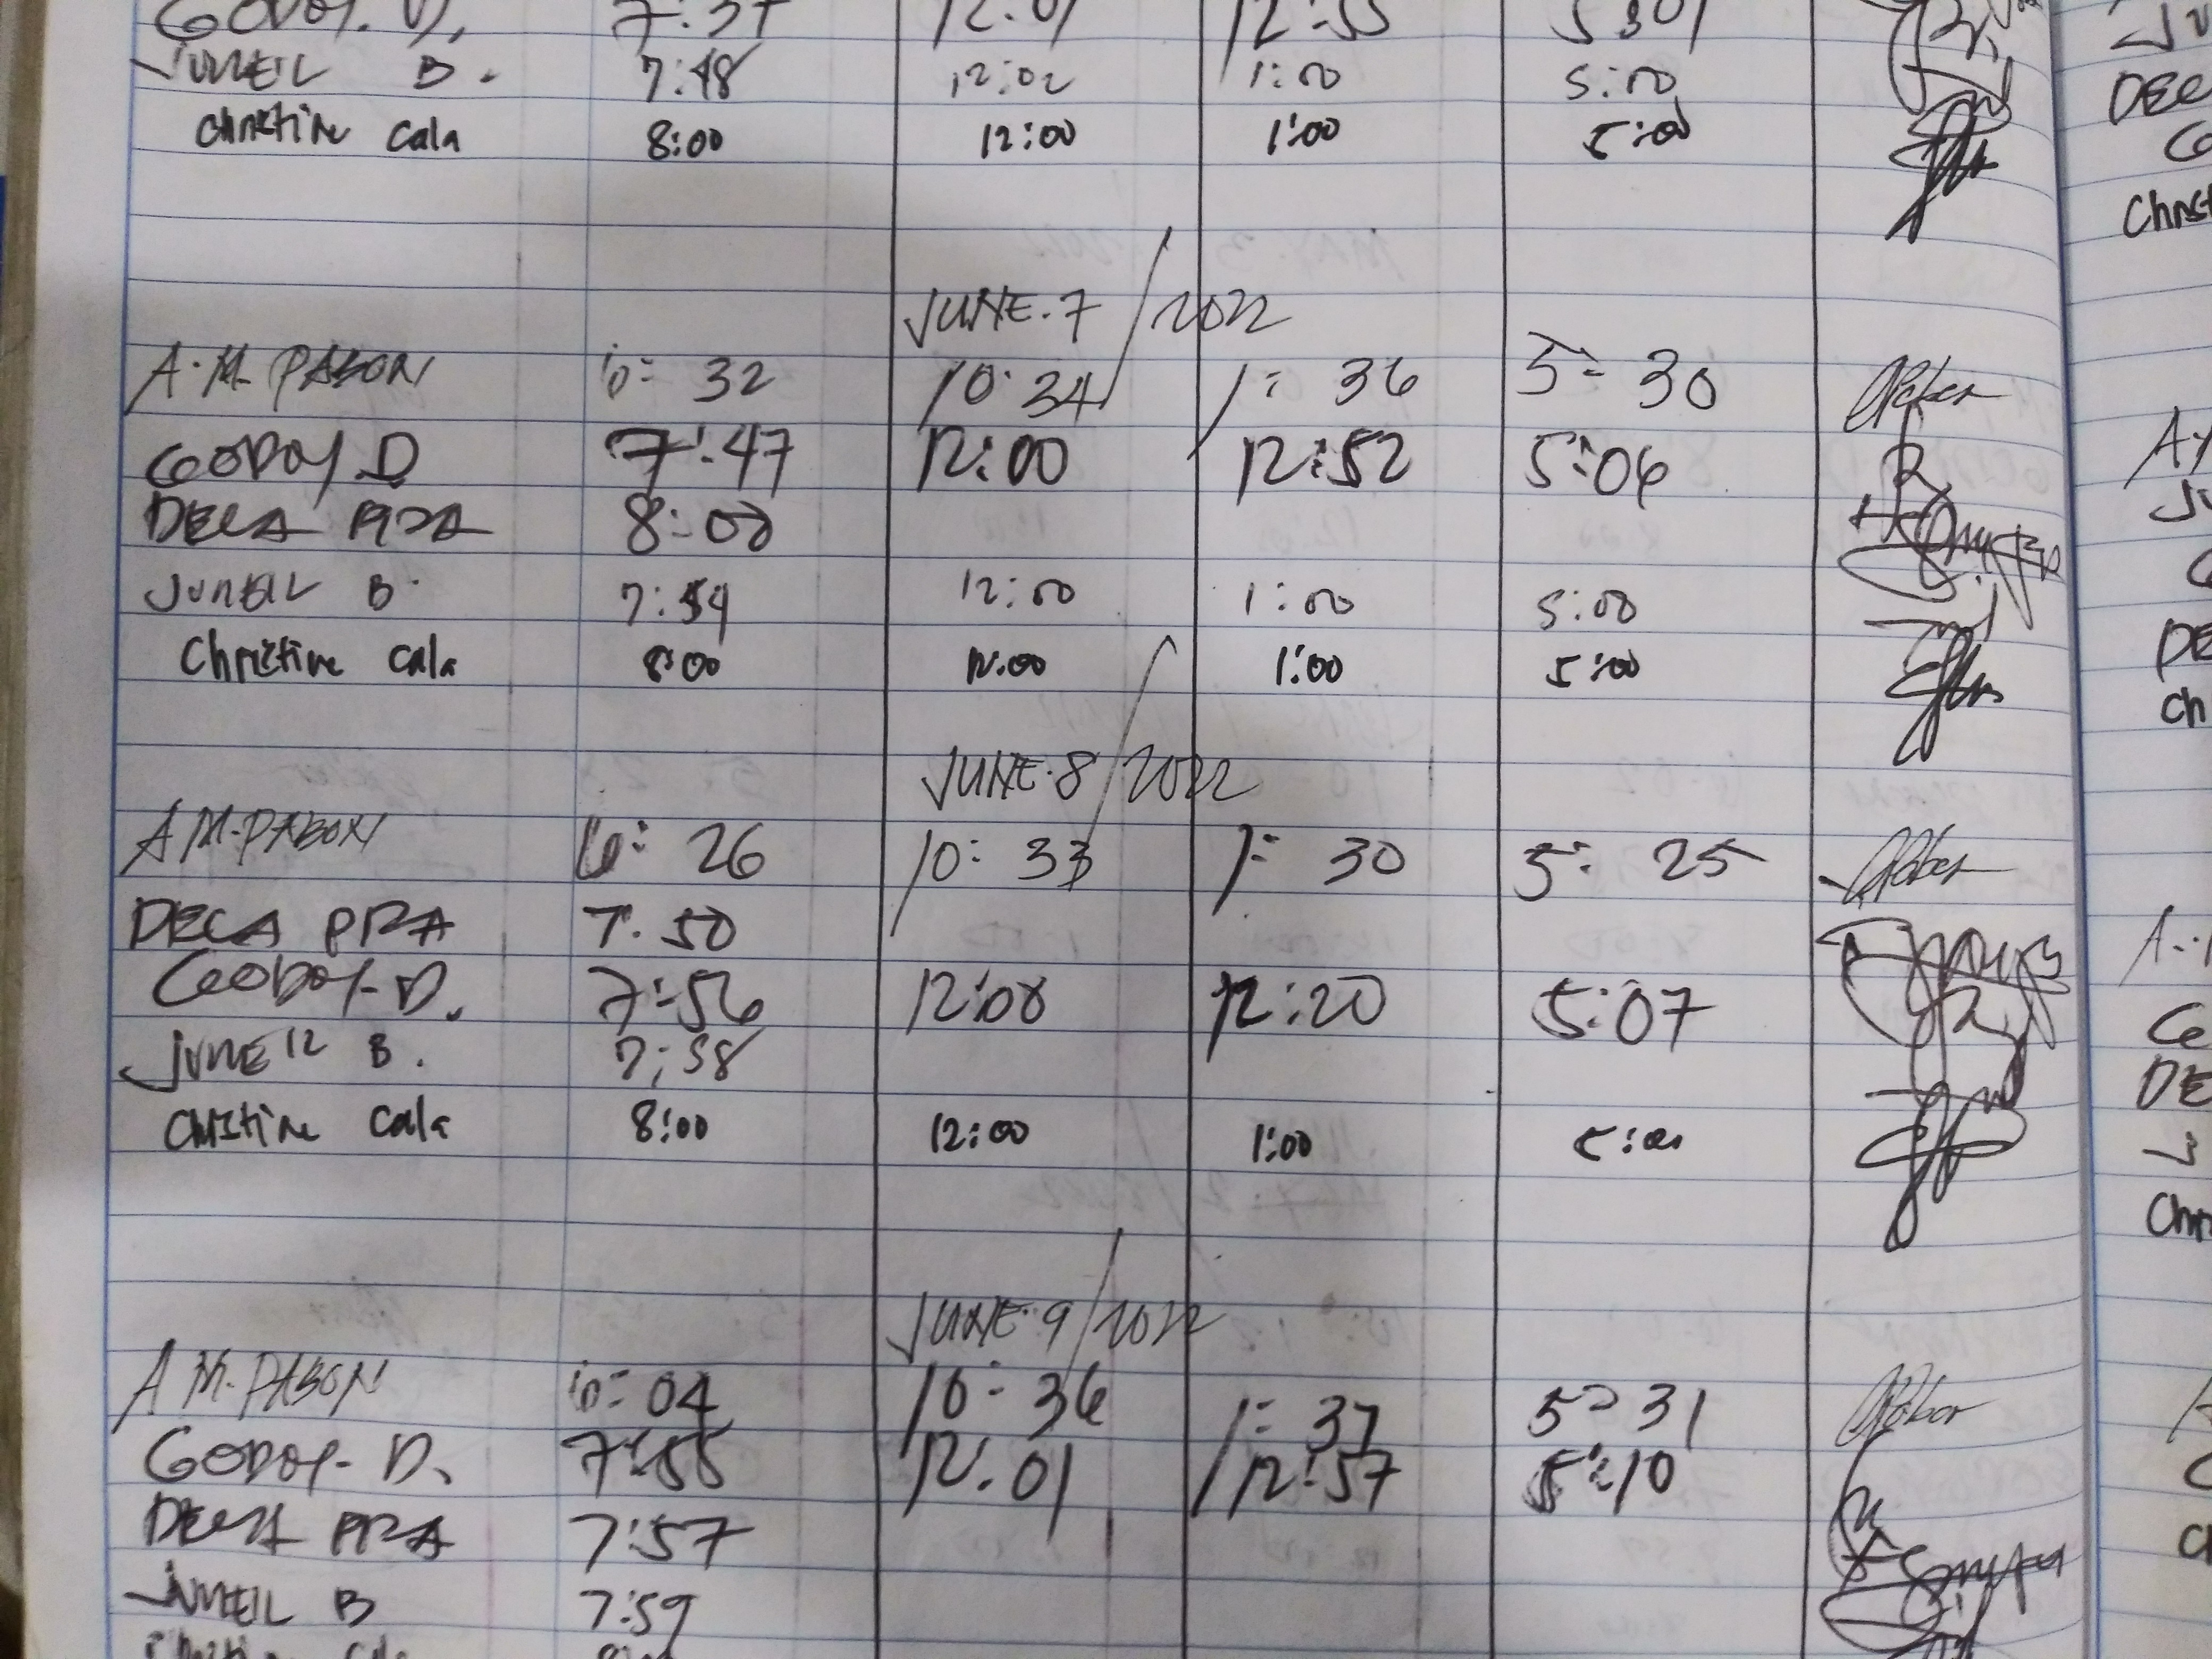 GODOY. D. 7:37 12:01 12:55 5:01
JUNEIL B. 7:48 12:02 1:00 5:00
Christine Cala 8:00 12:00 1:00 5:00
JUNE. 7 / 2022
A.M. PABON 10: 32 10:34 1: 36 5: 30
GODOY D 7:47 12:00 12:52 5:06
DECA PRA 8:00
JUNEIL B. 7:54 12:00 1:00 5:00
Christine Cala 8:00 12:00 1:00 5:00
JUNE. 8 / 2022
A M. PABON 10: 26 10: 33 1: 30 5: 25
DECA PRA 7:50
GODOY- D. 7:56 12:00 12:20 5:07
JUNEIL B. 7:58
Christine Cala 8:00 12:00 1:00 5:00
JUNE. 9 / 2022
A M. PABON 10: 04 10: 36 1: 37 5: 31
GODOY- D. 7:55 12:01 12:57 5:10
DECA PRA 7:57
JUNEIL B 7:59
Christine Cala